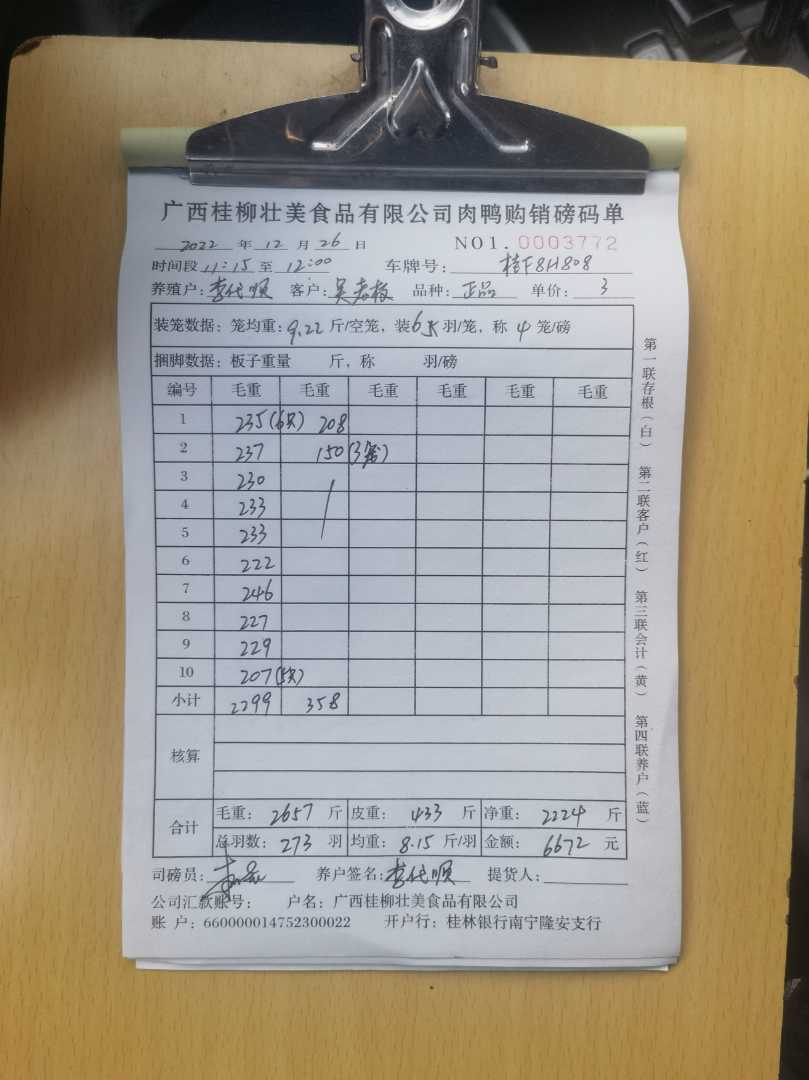 广西桂柳壮美食品有限公司肉鸭购销磅码单
2022 年 12 月 26 日 NO1. 0003772
时间段 11:15 至 12:00 车牌号: 桂F8H808
养殖户: 李代顺 客户: 吴老板 品种: 正品 单价: 3
装笼数据: 笼均重: 9.22 斤/空笼, 装 6只 羽/笼, 称 4 笼/磅
捆脚数据: 板子重量 斤, 称 羽/磅
编号 毛重 毛重 毛重 毛重 毛重 毛重
1 235(6只) 208
2 237 150(3笼)
3 230
4 233
5 233
6 222
7 246
8 227
9 229
10 207(5只)
小计 2299 358
核算
合计 毛重: 2657 斤 皮重: 433 斤 净重: 2224 斤
总羽数: 273 羽 均重: 8.15 斤/羽 金额: 6672 元
司磅员: 养户签名: 李代顺 提货人:
公司汇款账号: 户名: 广西桂柳壮美食品有限公司
账 户: 660000014752300022 开户行: 桂林银行南宁隆安支行
第一联存根(白) 第二联客户(红) 第三联会计(黄) 第四联养户(蓝)